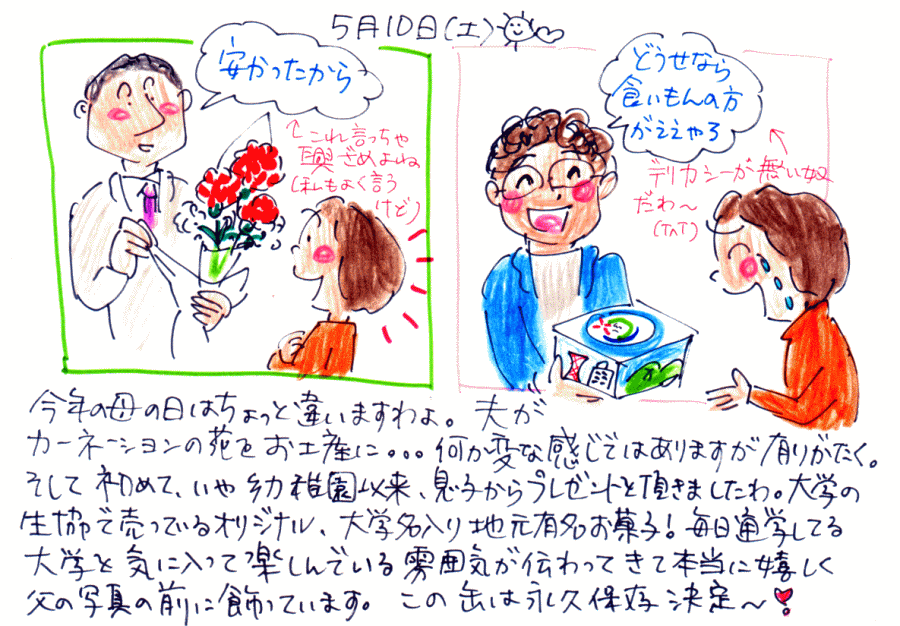 5月10日(土)
安かったから
←これ言っちゃ
興ざめよね
(私もよく言う
けど)
どうせなら
食いもんの方
がええやろ
デリカシーが無い奴
だわ〜
(TAT)
今年の母の日はちょっと違いますわよ。 夫が
カーネーションの花をお土産に。。。何か変な感じではありますが有りがたく。
そして初めて、いや幼稚園以来、息子からプレゼントを頂きましたわ。大学の
生協で売っているオリジナル、大学名入り地元有名お菓子!毎日通学してる
大学を気に入って楽しんでいる雰囲気が伝わってきて本当に嬉しく
父の写真の前に飾っています。 この缶は永久保存決定〜